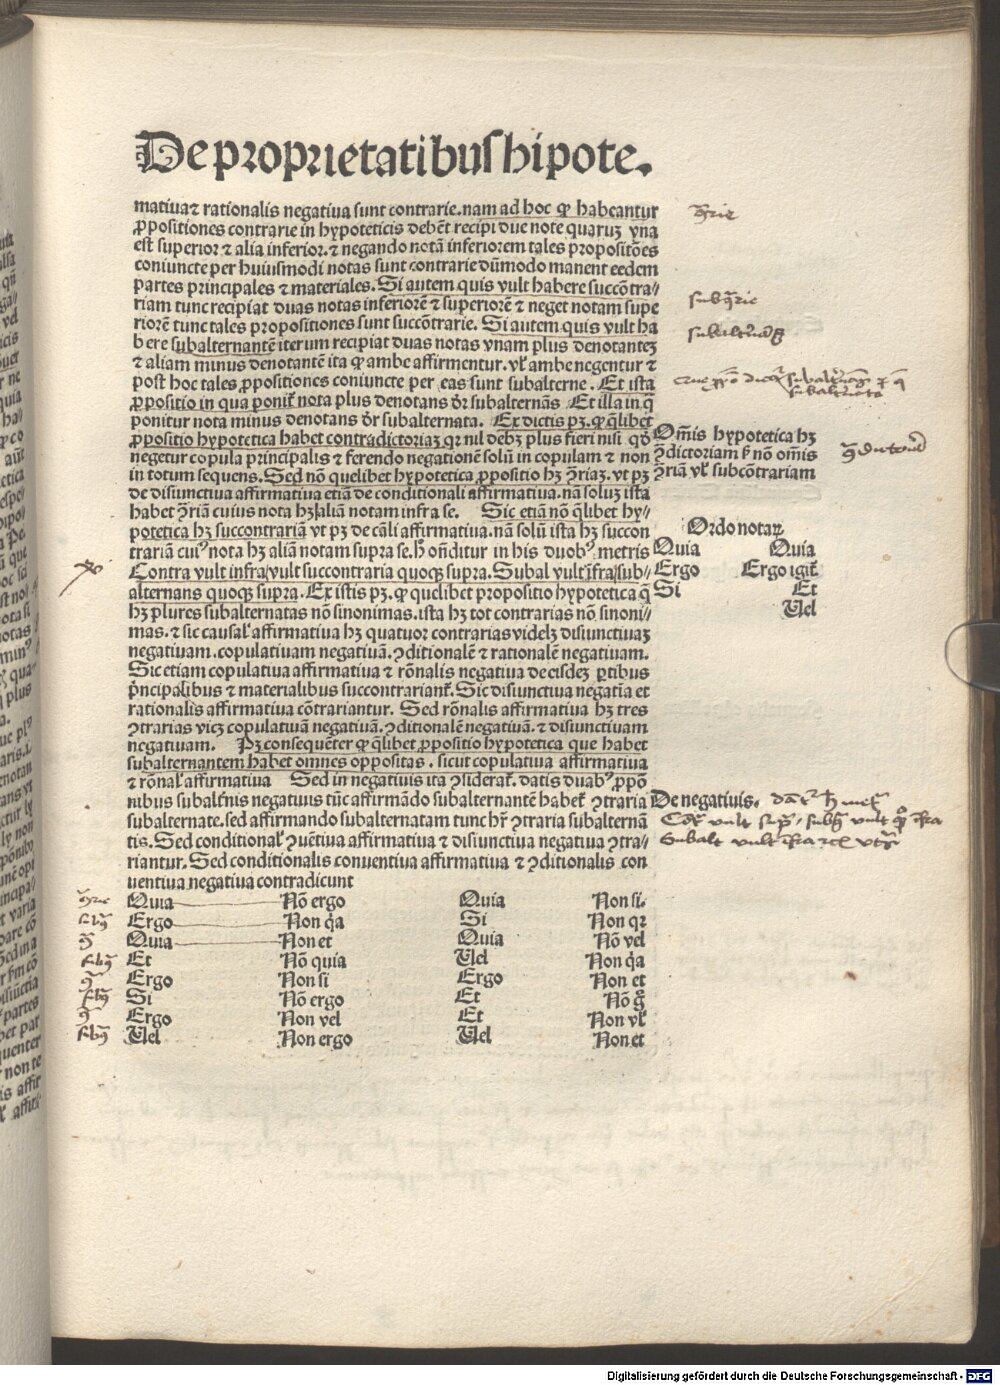 De proprietatibus hipote.
matiua ⁊ rationalis negatiua sunt contrarie. nam ad hoc ꝙ habeantur
ꝓpositiones contrarie in hypoteticis debēt recipi due note quaruꝫ vna
est superior ⁊ alia inferior. ⁊ negando notā inferiorem tales propositōes
coniuncte per huiusmodi notas sunt contrarie dūmodo manent eedem
partes principales ⁊ materiales. Si autem quis vult habere succōtra/
riam tunc recipiat duas notas inferiorē ⁊ superiorē ⁊ neget notam supe
riorē tunc tales propositiones sunt succōtrarie. Si autem quis vult ha
bere subalternantē iterum recipiat duas notas vnam plus denotanteꝫ
⁊ aliam minus denotantē ita ꝙ ambe affirmentur. vl̓ ambe negentur ⁊
post hoc tales ꝓpositiones coniuncte per eas sunt subalterne. Et ista
ꝓpositio in qua ponit̄ nota plus denotans dr̄ subalternās Et illa in q̄
ponitur nota minus denotans dr̄ subalternata. Ex dictis pꝫ. ꝙ q̄libet
ꝓpositio hypotetica habet contradictoriaꝫ qꝛ nil debꝫ plus fieri nisi qō
negetur copula principalis ⁊ ferendo negationē solū in copulam ⁊ non
in totum sequens. Sed nō quelibet hypotetica ꝓpositio hꝫ ꝯriaꝫ. vt pꝫ
de disiunctiua affirmatiua etiā de conditionali affirmatiua. nā soluꝫ ista
habet ꝯriā cuius nota hꝫ aliā notam infra se. Sic etiā nō q̄libet hy/
potetica hꝫ succontrariā vt pꝫ de cāli affirmatiua. nā solū ista hꝫ succon
trariā cuiꝰ nota hꝫ aliā notam supra se. hͦ oñditur in his duobꝰ metris
Contra vult infra/vult succontraria quoqꝫ supra. Subal vult īfra/sub/
alternans quoqꝫ supra. Ex istis pꝫ. ꝙ quelibet propositio hypotetica q̄
hꝫ plures subalternatas nō sinonimas. ista hꝫ tot contrarias nō sinoni/
mas. ⁊ sic causal̓ affirmatiua hꝫ quatuor contrarias videlꝫ disiunctiuaꝫ
negatiuam. copulatiuam negatiuā. ꝯditionalē ⁊ rationalē negatiuam.
Sic etiam copulatiua affirmatiua ⁊ rōnalis negatiua de eisdeꝫ ꝑtibus
pͥncipalibus ⁊ materialibus succontrariant̄. Sic disiunctiua negatia et
rationalis affirmatiua cōtrariantur. Sed rōnalis affirmatiua hꝫ tres
ꝯtrarias vicꝫ copulatiuā negatiuā. ꝯditionalē negatiuā. ⁊ disiunctiuam
negatiuam. Pꝫ consequēter ꝙ q̄libet ꝓpositio hypotetica que habet
subalternantem habet omnes oppositas. sicut copulatiua affirmatiua
⁊ rōnal̓ affirmatiua Sed in negatiuis ita ꝯsiderat̄. datis duabꝰ ꝓpō
nibus subalt̄nis negatiuis tūc affirmādo subalternantē habet̄ ꝯtraria
subalternate. sed affirmando subalternatam tunc hr̄ ꝯtraria subalternā
tis. Sed conditional̓ ꝯuētiua affirmatiua ⁊ disiunctiua negatiua ꝯtra/
riantur. Sed conditionalis conuentiua affirmatiua ⁊ ꝯditionalis con
uentiua negatiua contradicunt
Quia Nō ergo Quia Non si.
Ergo Non q̇a Si Non qꝛ
Quia Non et Quia Nō vel
Et Nō quia Uel Non q̇a
Ergo Non si Ergo Non et
Si Nō ergo Et Nō gͦ
Ergo Non vel Et Non vl̓
Uel Non ergo Uel Non et
Om̄is hypotetica hꝫ
ꝯdictoriam sꝫ non om̄is
ꝯriā vl̓ subcōtrariam
Ordo notaꝝ
Quia Quia
Ergo Ergo igit̄
Si Et
Uel
De negatiuis.
Digitalisierung gefördert durch die Deutsche Forschungsgemeinschaft - DFG